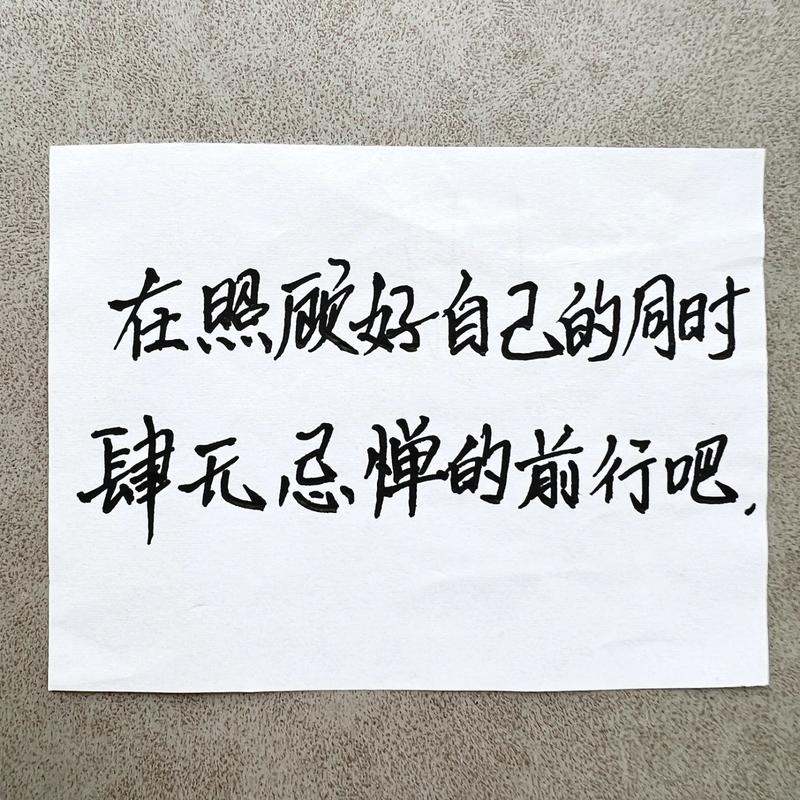 在照顾好自己的同时
肆无忌惮的前行吧.